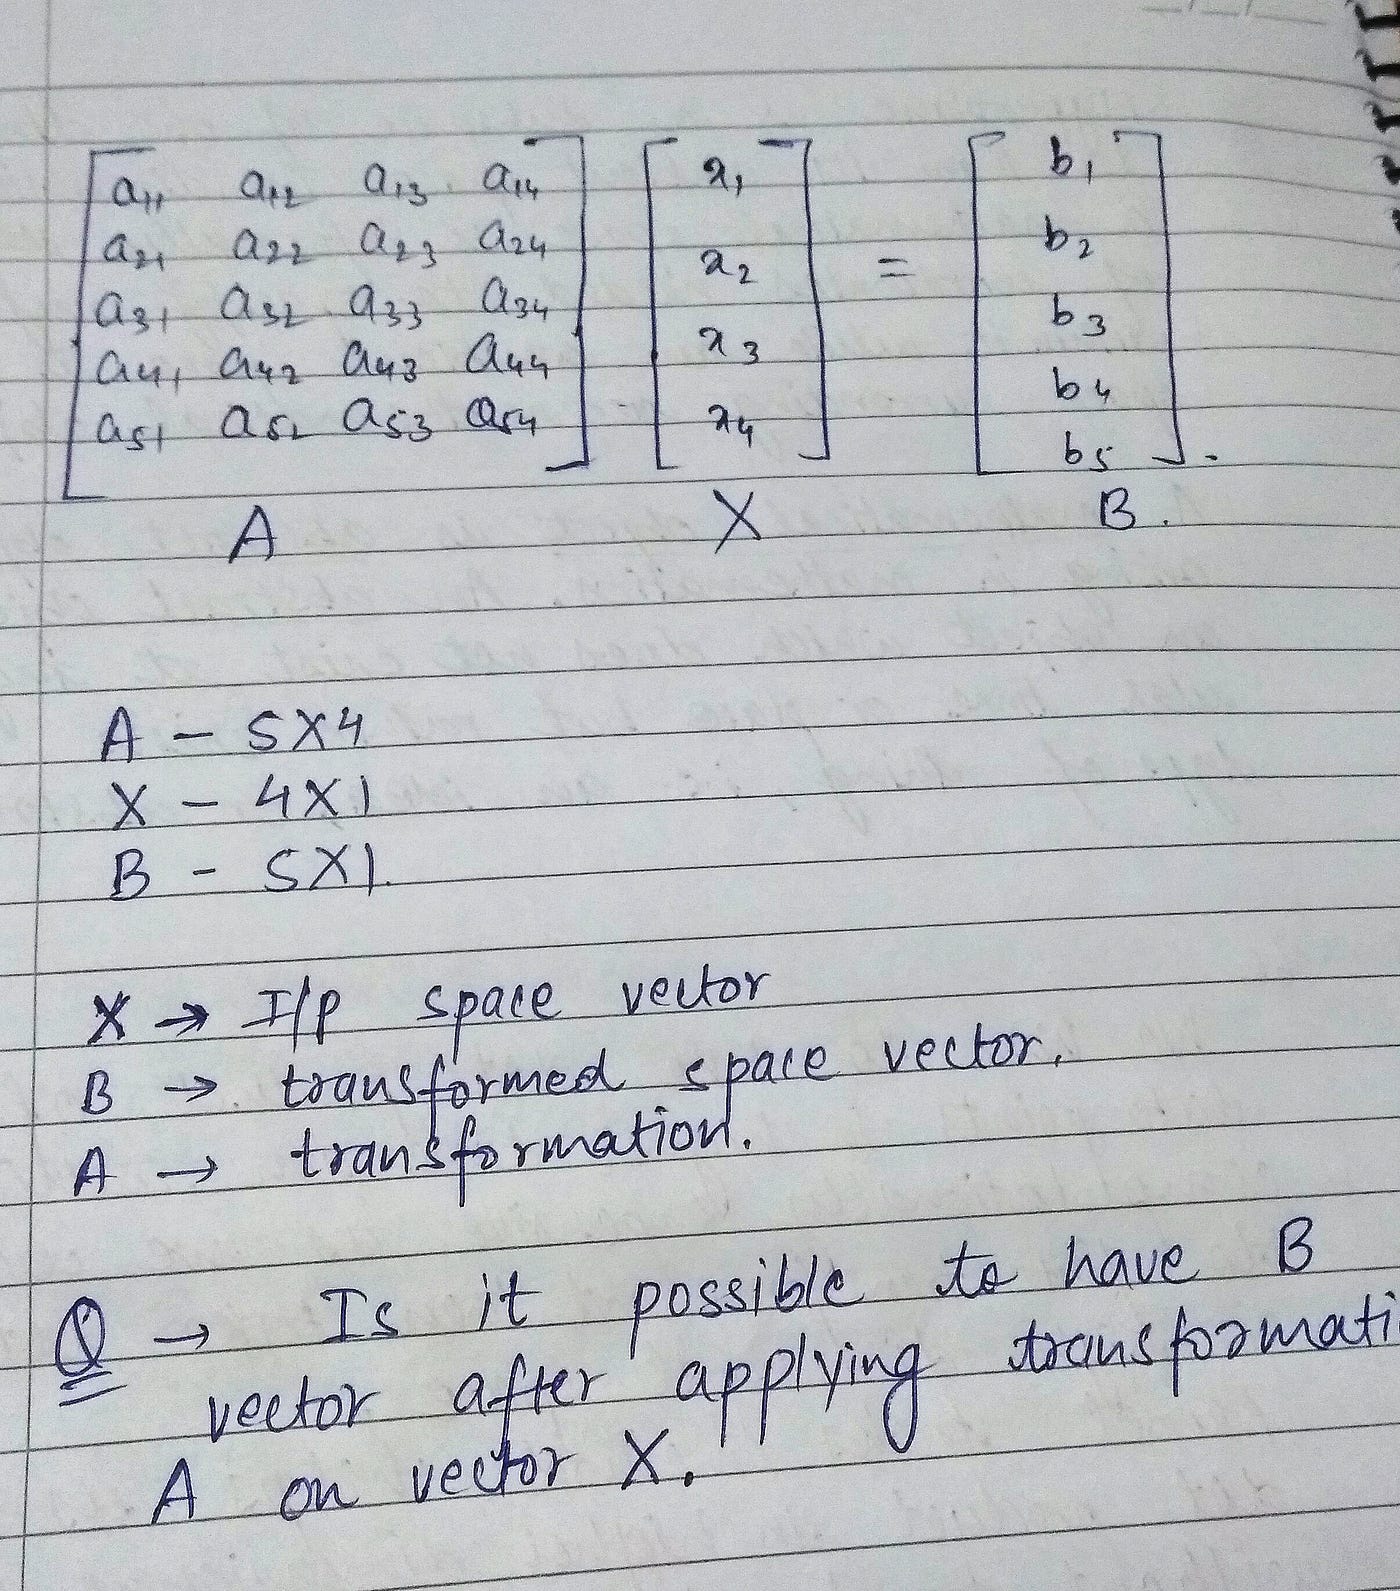 a11 a12 a13 a14 x1 b1
a21 a22 a23 a24 x2 = b2
a31 a32 a33 a34 x3 b3
a41 a42 a43 a44 x4 b4
a51 a52 a53 a54 b5.
A X B.
A - 5X4
X - 4X1
B - 5X1.
X → I/P space vector
B → transformed space vector.
A → transformation.
Q → Is it possible to have B
vector after applying transformati
A on vector X.